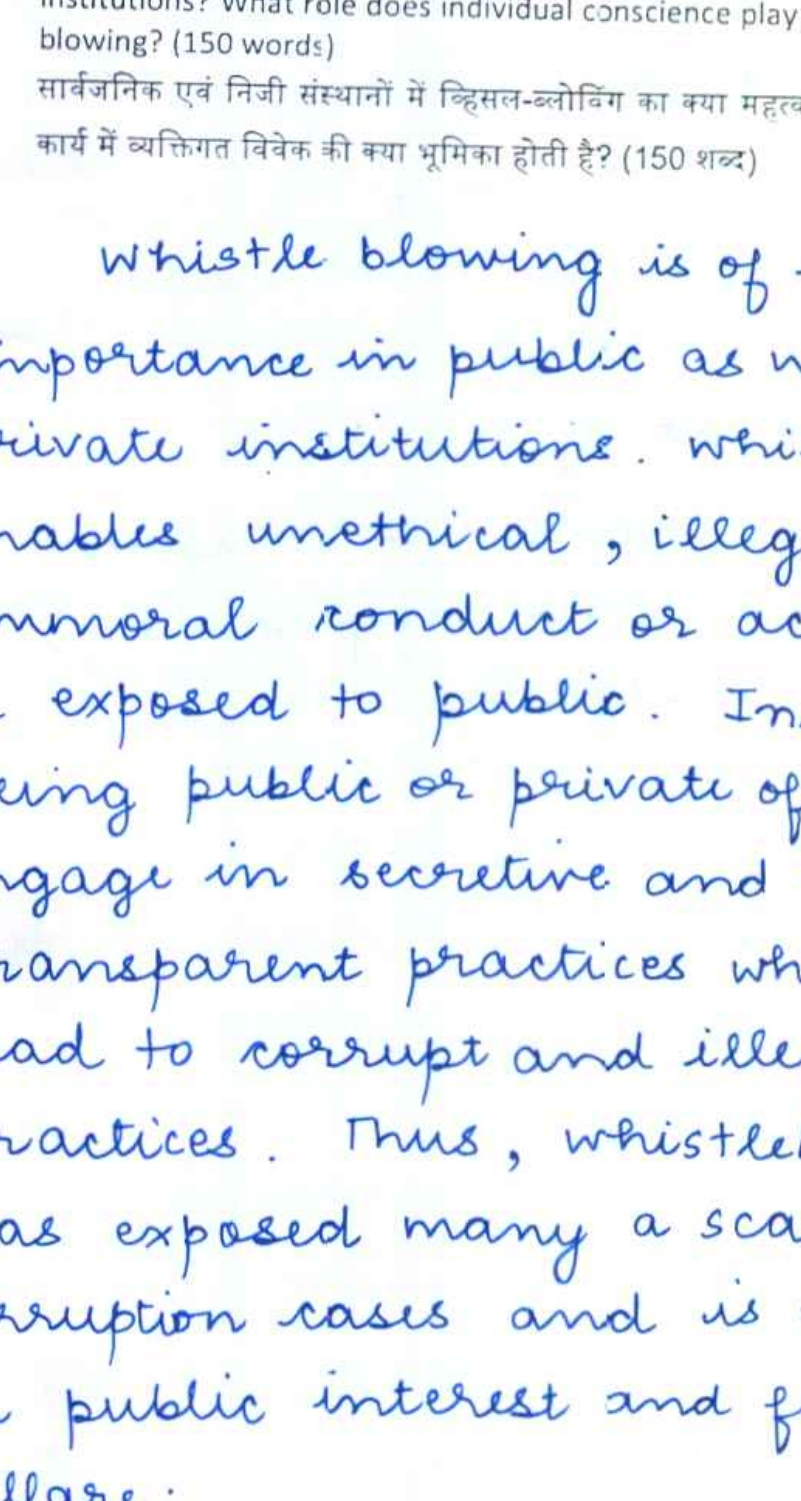 institutions? What role does individual conscience play
blowing? (150 words)
सार्वजनिक एवं निजी संस्थानों में व्हिसल-ब्लोविंग का क्या महत्व
कार्य में व्यक्तिगत विवेक की क्या भूमिका होती है? (150 शब्द)
Whistle blowing is of
mportance in public as w
rivate institutions. Whi
nables unethical, illeg
mmoral conduct or ac
exposed to public. In
eing public or private of
ngage in secretive and
ransparent practices wh
ead to corrupt and ille
ractices. Thus, whistle
as exposed many a sca
rruption cases and is
public interest and f
elfare.